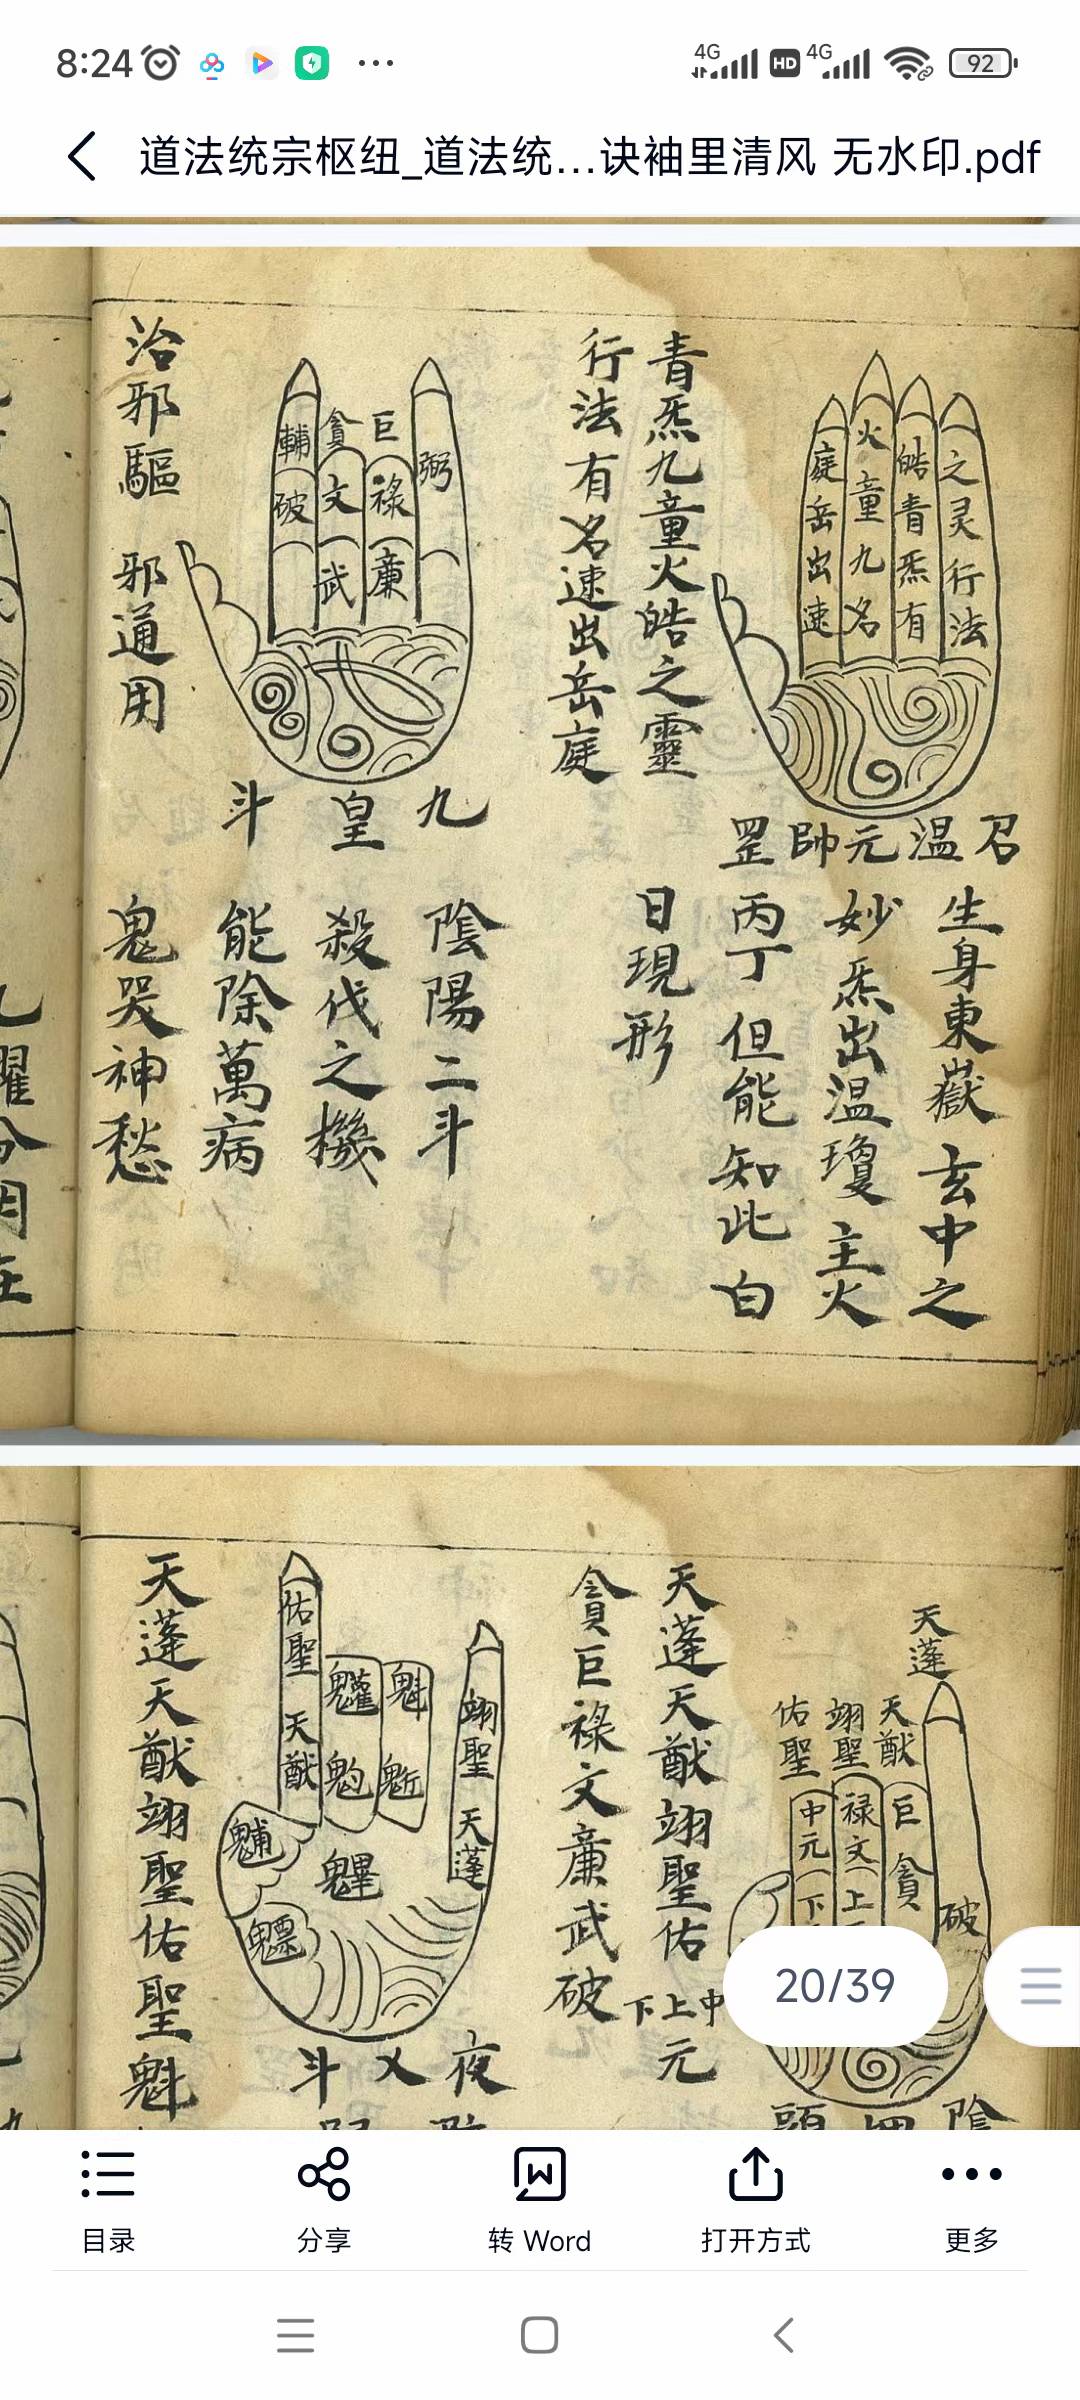 8:24
4G
HD
4G
92
道法统宗枢纽_道法统...诀袖里清风 无水印.pdf
之灵行法
皓青炁有
火童九名
庭岳出速
召温元帥罡
生身東嶽玄中之
妙炁出温瓊主火
丙丁但能知此白
日現形
青炁九童火皓之靈
行法有名速出岳庭
弼
巨禄廉
貪文武
輔破
九皇斗
陰陽二斗
殺伐之機
能除萬病
鬼哭神愁
治邪驅邪通用
天蓬
天猷
翊聖
佑聖
破
巨貪
禄文上
中元下
陰
天蓬天猷翊聖佑
下上中
元
貪巨禄文廉武破
翊聖天蓬
魁
魓
佑聖天猷
夜乂斗
天蓬天猷翊聖佑聖魁
20/39
目录
分享
转 Word
打开方式
更多